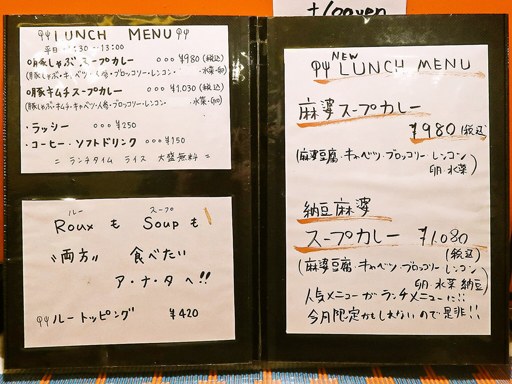 +100yen
LUNCH MENU
平日 11:30~15:00
○豚しゃぶスープカレー ○○○ ¥980(税込)
(豚しゃぶ・キャベツ・人参・ブロッコリー・レンコン・水菜・卵)
○豚キムチスープカレー ○○○ ¥1,030(税込)
(豚しゃぶ・キムチ・キャベツ・人参・ブロッコリー・レンコン・水菜・卵)
・ラッシー ○○○ ¥250
・コーヒー・ソフトドリンク ○○○ ¥150
= ランチタイム ライス 大盛無料 =
ルー スープ
Roux も Soup も
〝両方〟 食べたい
ア・ナ・タ へ!!
ルートッピング ¥420
NEW
LUNCH MENU
麻婆スープカレー
¥980(税込)
(麻婆豆腐・キャベツ・ブロッコリー・レンコン
卵・水菜)
納豆麻婆
スープカレー ¥1,080
(税込)
(麻婆豆腐・キャベツ・ブロッコリー・レンコン
卵・水菜・納豆)
人気メニューがランチメニューに!!
今月限定かもしれないので是非!!